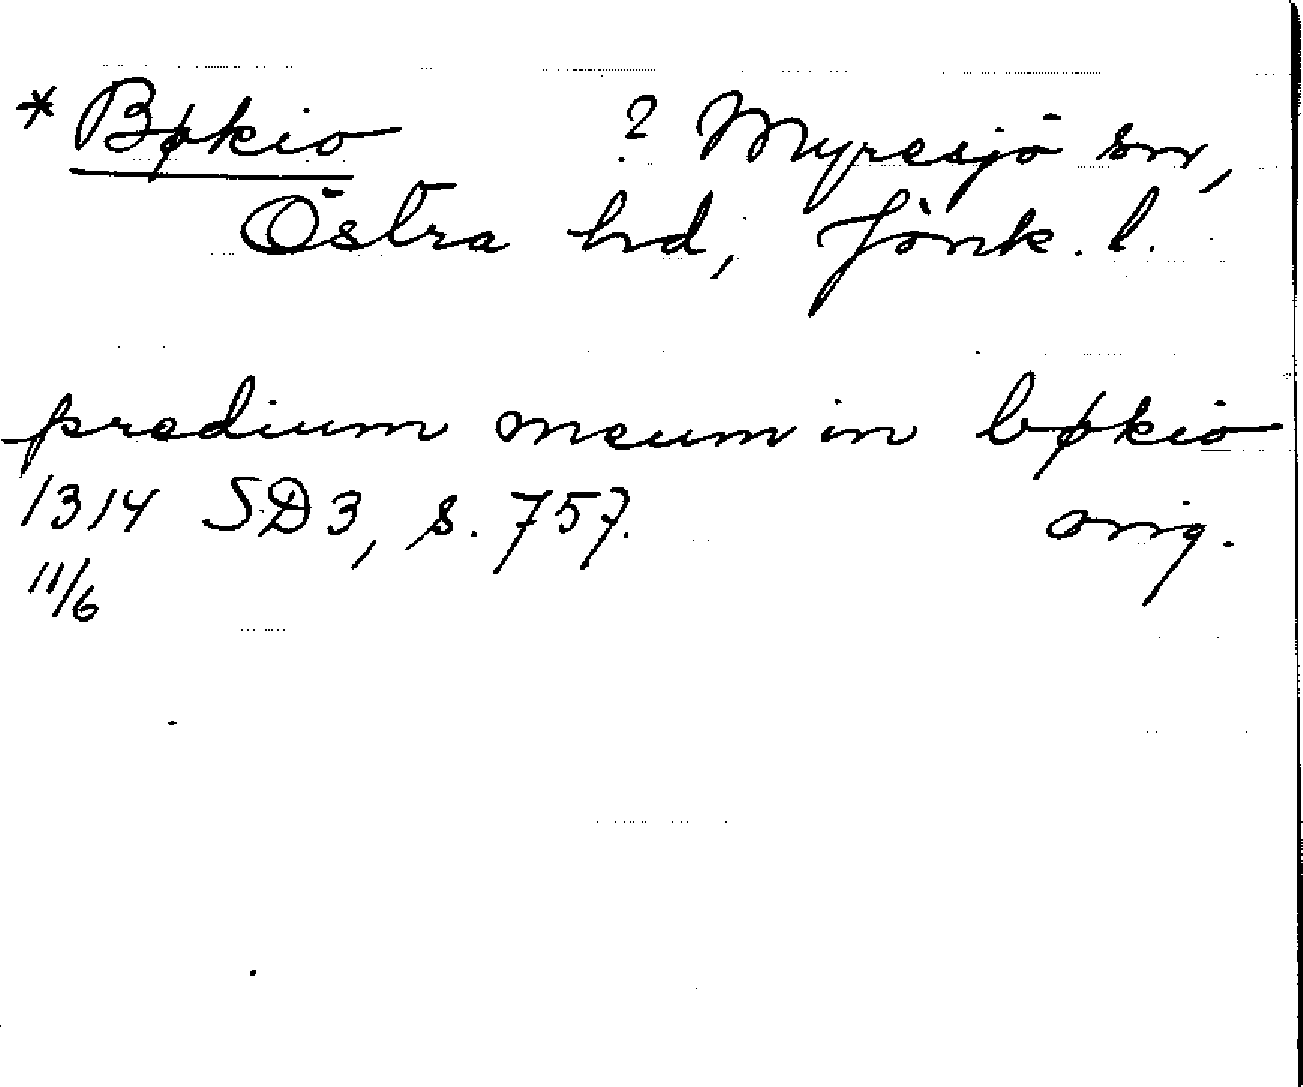 * Bøkio ? Myresjö sn,
Östra hd, Jönk. l.
predium meum in bøkio
1314 SD3, s. 757. orig.
11/6